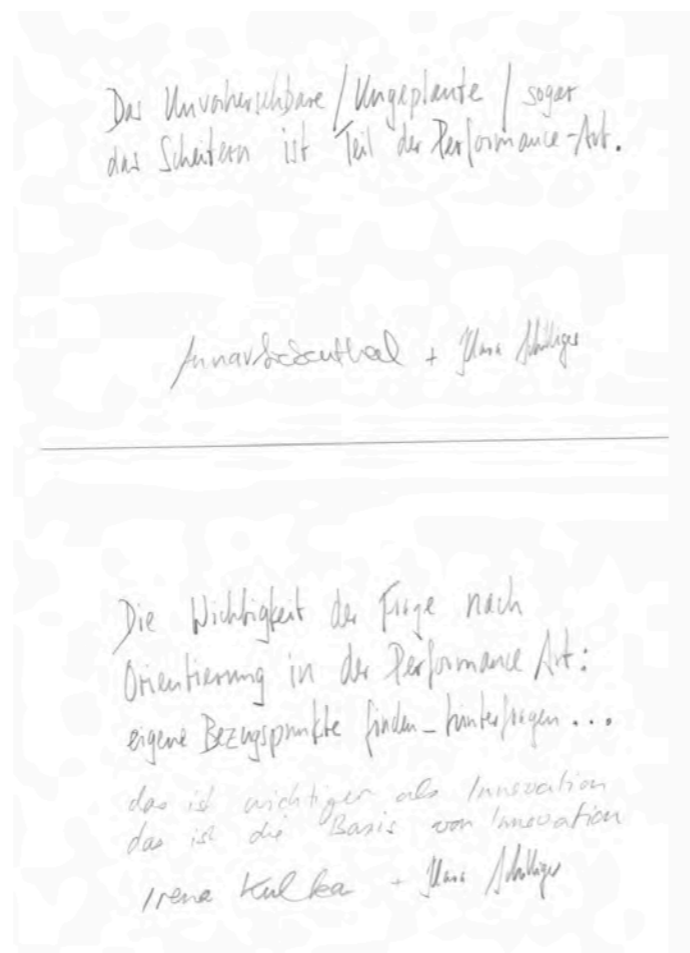 Das Unvorhersehbare / Ungeplante / sogar
das Scheitern ist Teil der Performance-Art.
+ Klara Schilliger
Die Wichtigkeit der Frage nach
Orientierung in der Performance Art:
eigene Bezugspunkte finden – hinterfragen...
das ist wichtiger als Innovation
das ist die Basis von Innovation
Irena Kulka + Klara Schilliger